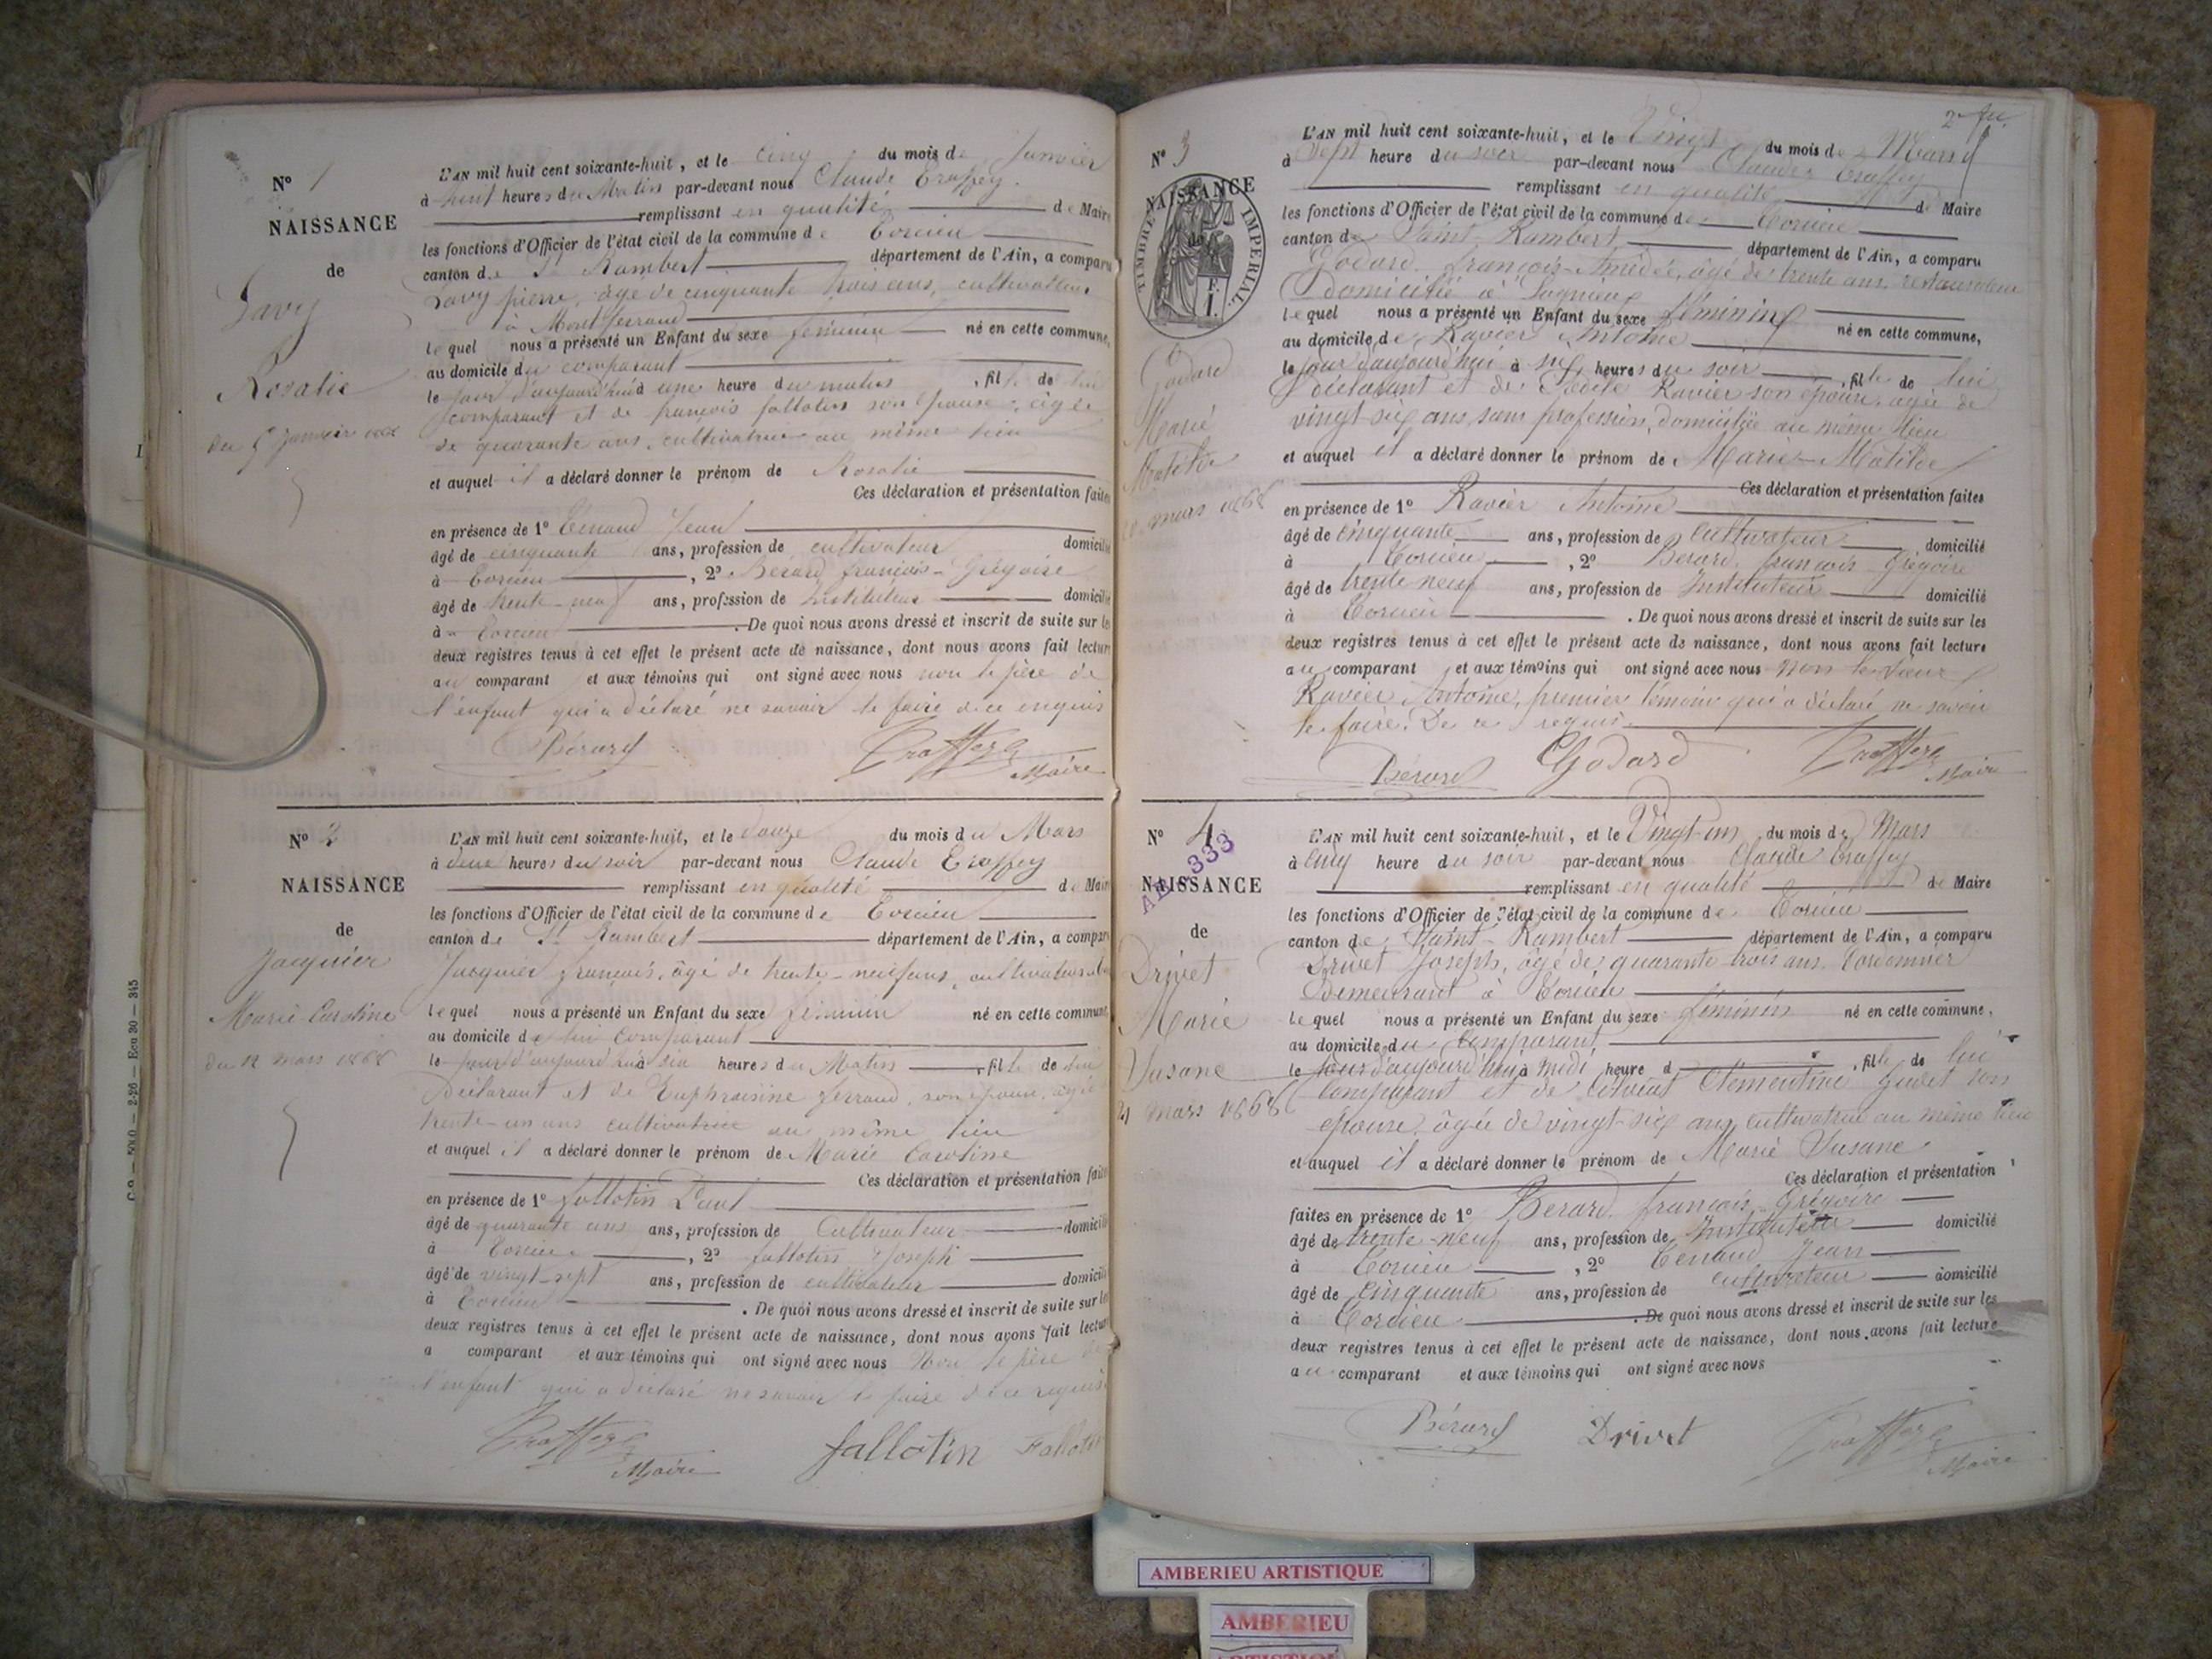 N° 1
NAISSANCE
de
Savy
Rosalie
du 5 Janvier 1868
L'AN mil huit cent soixante-huit, et le cinq du mois de Janvier
à huit heures du Matin par-devant nous Claude Traffey
remplissant en qualité de Maire
les fonctions d'Officier de l'état civil de la commune de Torcieu
canton de St Rambert département de l'Ain, a comparu
Savy pierre, âgé de cinquante trois ans, cultivateur
à Montferrand
lequel nous a présenté un Enfant du sexe féminin né en cette commune,
au domicile du comparant
le jour d'aujourd'hui à une heure du matin, fille de lui
comparant et de françois fallotin son épouse, âgée
de quarante ans, cultivatrice au même lieu
et auquel il a déclaré donner le prénom de Rosalie
Ces déclaration et présentation faites
en présence de 1° Tenaud Jean
âgé de cinquante ans, profession de cultivateur domicilié
à Torcieu, 2° Berard françois-Grégoire
âgé de trente-neuf ans, profession de Instituteur domicilié
à Torcieu. De quoi nous avons dressé et inscrit de suite sur les
deux registres tenus à cet effet le présent acte de naissance, dont nous avons fait lecture
au comparant et aux témoins qui ont signé avec nous non le père de
l'enfant qui a déclaré ne savoir le faire de ce enquis
Bérard Traffey
Maire
N° 2
NAISSANCE
de
Jacquier
Marie Caroline
du 12 mars 1868
L'AN mil huit cent soixante-huit, et le douze du mois du Mars
à deux heures du soir par-devant nous Claude Traffey
remplissant en qualité de Maire
les fonctions d'Officier de l'état civil de la commune de Torcieu
canton de St Rambert département de l'Ain, a comparu
Jacquier françois, âgé de trente-neuf ans, cultivateur
lequel nous a présenté un Enfant du sexe féminin né en cette commune,
au domicile de lui comparant
le jour d'aujourd'hui à six heures du Matin, fille de lui
Déclarant et de Euphroisine ferrand, son épouse, âgée
trente-un ans cultivatrice au même lieu
et auquel il a déclaré donner le prénom de Marie Caroline
Ces déclaration et présentation faites
en présence de 1° fallotin Paul
âgé de quarante ans ans, profession de Cultivateur domicilié
à Torcieu, 2° fallotin Joseph
âgé de vingt-sept ans, profession de cultivateur domicilié
à Torcieu. De quoi nous avons dressé et inscrit de suite sur les
deux registres tenus à cet effet le présent acte de naissance, dont nous avons fait lecture
a comparant et aux témoins qui ont signé avec nous Non le père de
l'enfant qui a déclaré ne savoir le faire de ce requis
Traffey fallotin Fallotin
Maire
C 9 — 5010 — 2-26 — Ecu 30 — 345
2e fu.
N° 3
NAISSANCE
de
TIMBRE IMPERIAL
Godard
Marie
Matilde
20 mars 1868
L'AN mil huit cent soixante-huit, et le Vingt du mois de Mars
à Sept heure du soir par-devant nous Claude Traffey
remplissant en qualité de Maire
les fonctions d'Officier de l'état civil de la commune de Torcieu
canton de Saint Rambert département de l'Ain, a comparu
Godard françois-Amédée, âgé de trente ans, restaurateur
domicilié à Lagnieu
lequel nous a présenté un Enfant du sexe féminin né en cette commune,
au domicile de Ravier Antoine
le jour d'aujourd'hui à six heures du soir, fille de lui
déclarant et de Cécile Ravier son épouse, âgée de
vingt six ans, sans profession, domiciliée au même lieu
et auquel il a déclaré donner le prénom de Marie-Matilde
Ces déclaration et présentation faites
en présence de 1° Ravier Antoine
âgé de cinquante ans, profession de cultivateur domicilié
à Torcieu, 2° Berard françois Grégoire
âgé de trente neuf ans, profession de Instituteur domicilié
à Torcieu. De quoi nous avons dressé et inscrit de suite sur les
deux registres tenus à cet effet le présent acte de naissance, dont nous avons fait lecture
au comparant et aux témoins qui ont signé avec nous non le sieur
Ravier Antoine, premier témoin qui a déclaré ne savoir
le faire. De ce requis.
Bérard Godard Traffey
Maire
N° 4
NAISSANCE
de
Drivet
Marie
Susane
21 mars 1868
L'AN mil huit cent soixante-huit, et le Vingt-un du mois de Mars
à cinq heure du soir par-devant nous Claude Traffey
remplissant en qualité de Maire
les fonctions d'Officier de l'état civil de la commune de Torcieu
canton de Saint-Rambert département de l'Ain, a comparu
Drivet Joseph, âgé de quarante-trois ans, Cordonnier
Demeurant à Torcieu
lequel nous a présenté un Enfant du sexe féminin né en cette commune,
au domicile du Comparant
le jour d'aujourd'hui à midi heure d, fille de lui
comparant et de Clémentine Gudet son
épouse, âgée de vingt-six ans, cultivatrice au même lieu
et auquel il a déclaré donner le prénom de Marie Susane
Ces déclaration et présentation
faites en présence de 1° Berard françois-Grégoire
âgé de trente-neuf ans, profession de Instituteur domicilié
à Torcieu, 2° Tenaud Jean
âgé de cinquante ans, profession de cultivateur domicilié
à Torcieu. De quoi nous avons dressé et inscrit de suite sur les
deux registres tenus à cet effet le présent acte de naissance, dont nous avons fait lecture
au comparant et aux témoins qui ont signé avec nous
Bérard Drivet Traffey
Maire
AMBERIEU ARTISTIQUE
AMBERIEU
ARTISTIQUE